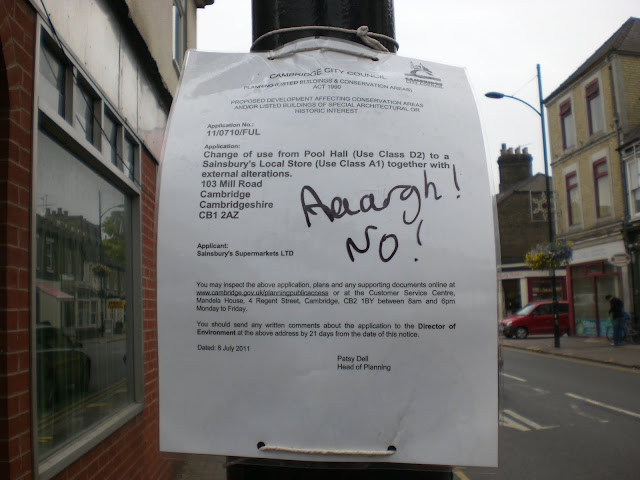 CAMBRIDGE CITY COUNCIL
PLANNING (LISTED BUILDINGS & CONSERVATION AREAS)
ACT 1990
PROPOSED DEVELOPMENT AFFECTING CONSERVATION AREAS
AND/OR LISTED BUILDINGS OF SPECIAL ARCHITECTURAL OR
HISTORIC INTEREST
Application No.:
11/0710/FUL
Application:
Change of use from Pool Hall (Use Class D2) to a
Sainsbury's Local Store (Use Class A1) together with
external alterations.
103 Mill Road
Cambridge
Cambridgeshire
CB1 2AZ
Aaargh!
No!
Applicant:
Sainsbury's Supermarkets LTD
You may inspect the above application, plans and any supporting documents online at
www.cambridge.gov.uk/planningpublicaccess or at the Customer Service Centre,
Mandela House, 4 Regent Street, Cambridge, CB2 1BY between 8am and 6pm
Monday to Friday.
You should send any written comments about the application to the Director of
Environment at the above address by 21 days from the date of this notice.
Dated: 8 July 2011
Patsy Dell
Head of Planning